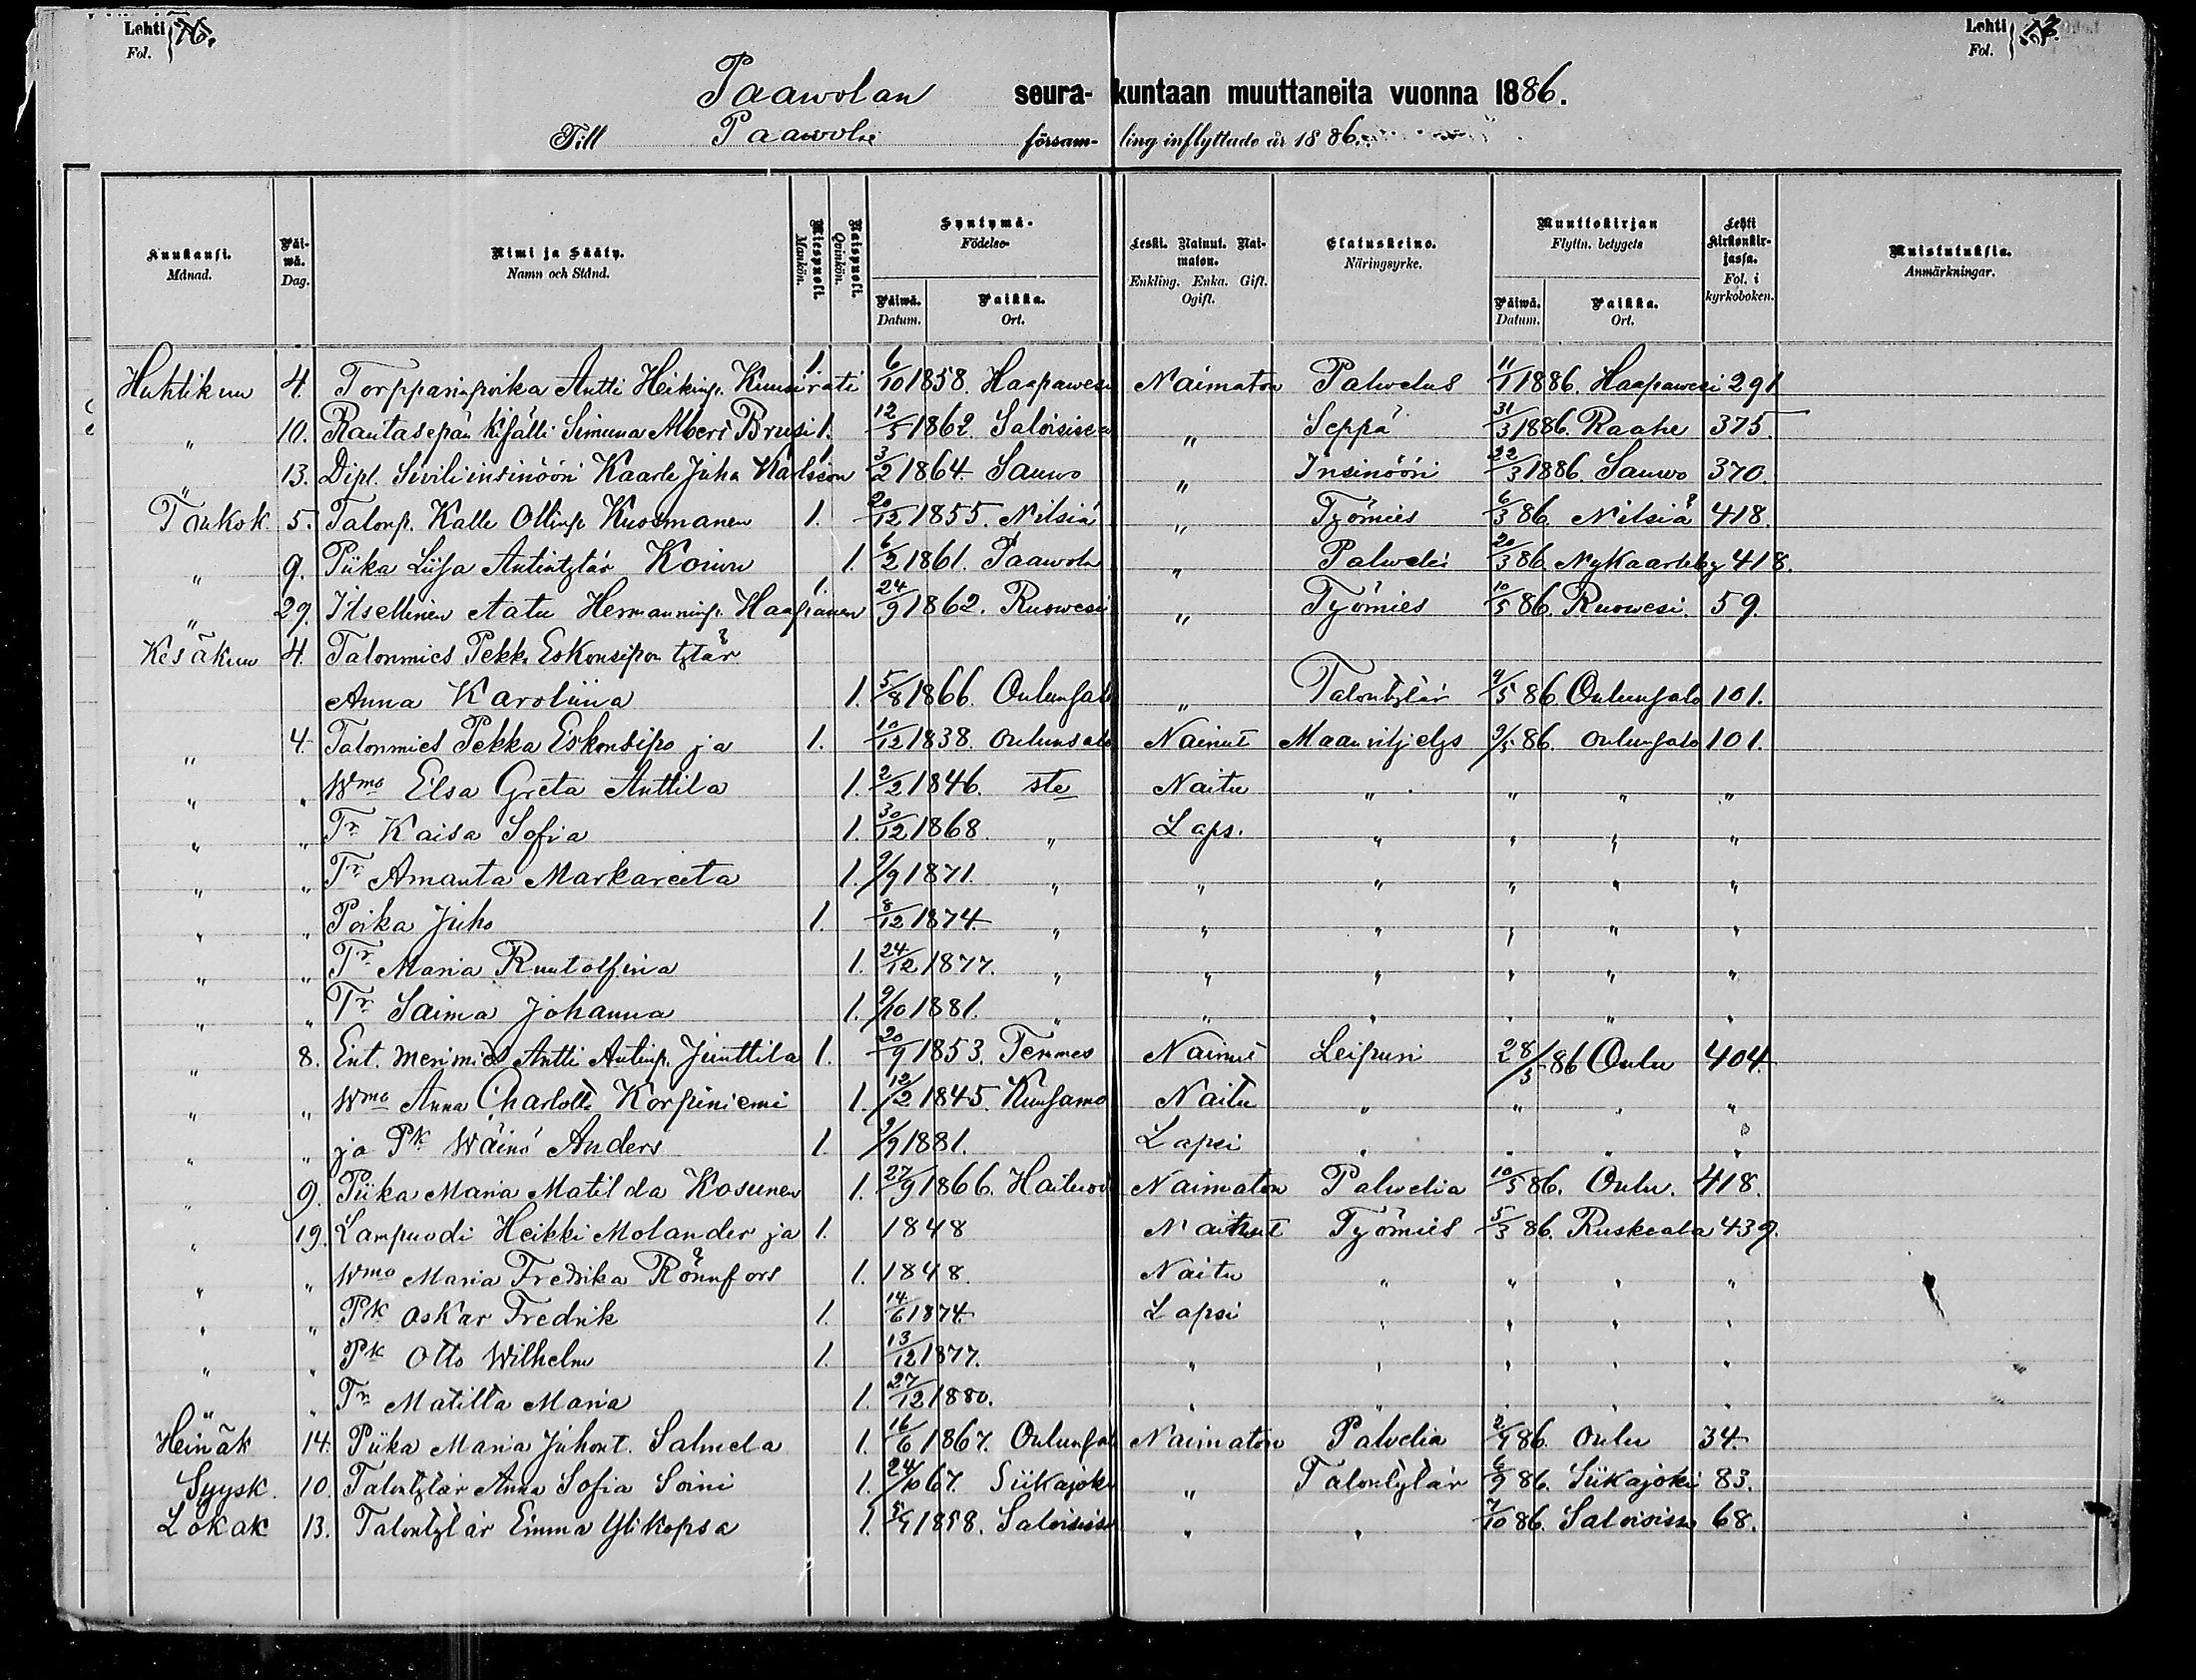 Lehti Fol. 76.
Lehti Fol.
Paawolan seura- kuntaan muuttaneita vuonna 1886.
Till Paawola församling inflyttade år 1886.
Kuukausi. Månad. Päiwä. Dag. Nimi ja Sääty. Namn och Stånd. Miespuoli. Mankön. Naispuoli. Qvinkön. Syntymä- Födelse- Päiwä. Datum. Paikka. Ort. Leski. Nainut. Naimaton. Enkling. Enka. Gift. Ogift. Elatuskeino. Näringsyrke. Muuttokirjan Flyttn. betygets Päiwä. Datum. Paikka. Ort. Lehti kirkonkirjassa. Fol. i kyrkoboken. Muistutuksia. Anmärkningar.
Huhtikuu 4. Torpparinpoika Antti Heikinp. Kuusirati 1. 6/10 1858. Haapawesi Naimaton Palwelus 11/1 1886. Haapawesi 291
" 10. Rautasepän Kisälli Simuna Albert Brusi 1. 12/5 1862. Saloisissa " Seppä 31/3 1886. Raahe 375.
" 13. Dipl. Siviliinsinööri Kaarle Juha Karlsson 1. 3/2 1864. Sauwo " Insinööri 22/3 1886. Sauwo 370.
Toukok. 5. Talonp. Kalle Ollinp Kuosmanen 1. 20/12 1855. Nilsiä " Työmies 6/3 86. Nilsiä 418.
" 9. Piika Liisa Antintytär Koiwu 1. 6/2 1861. Paawola " Palweli 20/3 86. Nykaarleby 418.
" 29. Itsellinen Aatu Hermanninp. Haapanen 1. 24/9 1862. Ruowesi " Työmies 10/5 86. Ruowesi. 59.
Kesäkuu 4. Talonmies Pekk. Eskonsipon tytär
Anna Karoliina 1. 5/8 1866. Oulunsalo " Talontytär 9/5 86. Oulunsalo 101.
" 4. Talonmies Pekka Eskonsipo ja 1. 10/12 1838. Oulunsalo Nainut Maanviljelys 9/5 86. Oulunsalo 101.
" " Wmo Elsa Greta Anttila 1. 2/2 1846. ste Naitu " " " "
" " Tr Kaisa Sofia 1. 30/12 1868. " Laps. " " " "
" " Tr Amanta Markareeta 1. 9/9 1871. " " " " " "
" " Poika Juho 1. 8/12 1874. " " " " " "
" " Tr Maria Ruutolfina 1. 24/12 1877. " " " " " "
" " Tr Saima Johanna 1. 9/10 1881. " " " " " "
" 8. Ent. merimies Antti Antinp. Junttila 1. 20/9 1853. Temmes Nainut Leipuri 28/5 86 Oulu 404.
" " Wmo Anna Charlotte Korpiniemi 1. 12/2 1845. Kuusamo Naitu " " " "
" " ja Pk Wäinö Anders 1. 9/9 1881. Lapsi " " " "
" 9. Piika Maria Matilda Kosunen 1. 27/9 1866. Hailuoi Naimaton Palwelia 10/5 86. Oulu. 418.
" 19. Lampuodi Heikki Molander ja 1. 1848 Nainut Työmies 5/3 86. Ruskeala 439.
" " Wmo Maria Fredrika Rönnfors 1. 1848. Naitu " " " "
" " Pk Oskar Fredrik 1. 14/6 1874. Lapsi " " " "
" " Pk Otto Wilhelm 1. 13/12 1877. " " " " "
" " Tr Matilta Maria 1. 27/12 1880. " " " " "
Heinäk 14. Piika Maria Juhont. Salmela 1. 16/6 1867. Oulunsal Naimaton Palvelia 2/7 86. Oulu 34.
Syysk. 10. Talontytär Anna Sofia Soini 1. 24/10 67. Siikajoki " Talontytär 6/9 86. Siikajoki 83.
Lokak 13. Talontytär Emma Ylikopsa 1. 5/7 1858. Saloisissa " " 7/10 86. Saloisissa 68.